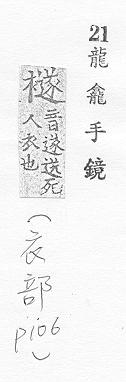 21 龍龕手鏡
襚 音遂送死
人衣也
(衣部
p106)